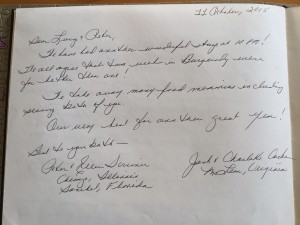 11 October, 2015
Dear Lucy & Peter,
We have had another wonderful stay at
We all agree that two weeks in Burgundy were
far better than one!
We take away many fond memories including
seeing both of you
Our very best for another great year!
Best to you both—
Peter & Ellen
Chicago, Illinois
Sanibel, Florida
Jack & Charlotte
McLean, Virginia